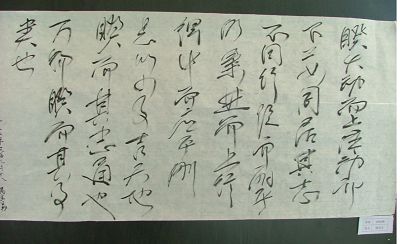 睽火動而上澤動而
下二女同居其志
不同行說而麗乎
明柔進而上行
得中而應乎剛
是以小事吉天地
睽而其志通也
万物睽而其事
類也